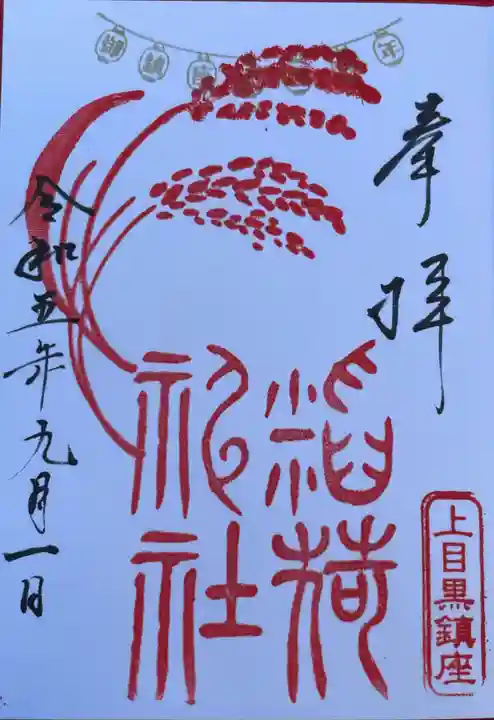 御鎮 年
奉拝
上目黒鎮座
稲荷
神社
令和五年九月一日